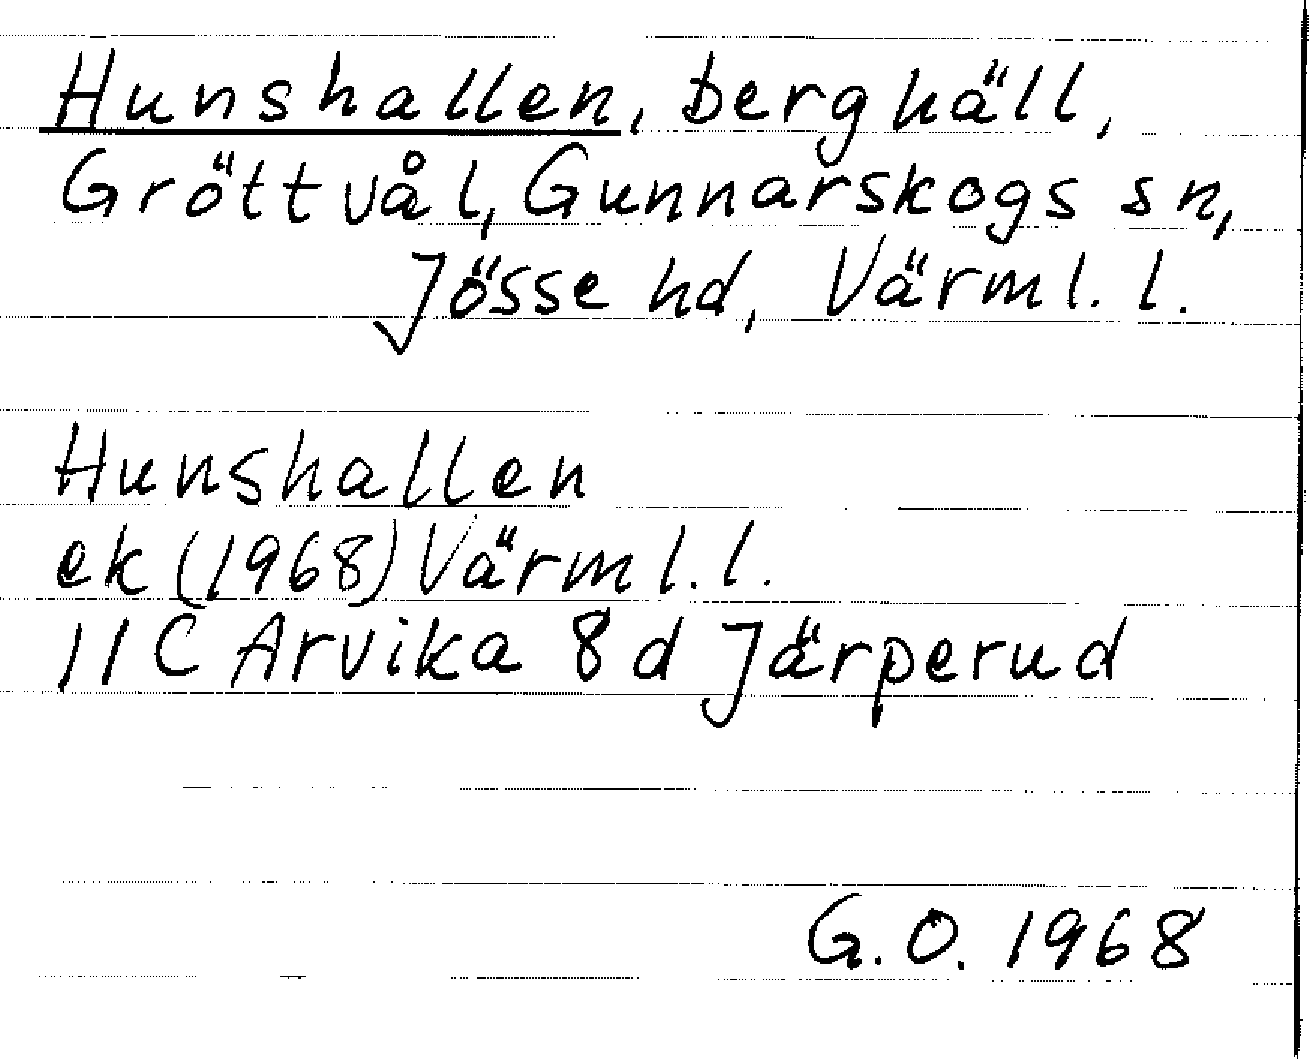 Hunshallen, berghäll,
Gröttvål, Gunnarskogs sn,
Jösse hd, Värml. l.
Hunshallen
ek (1968) Värml. l.
11C Arvika 8d Järperud
G.O. 1968